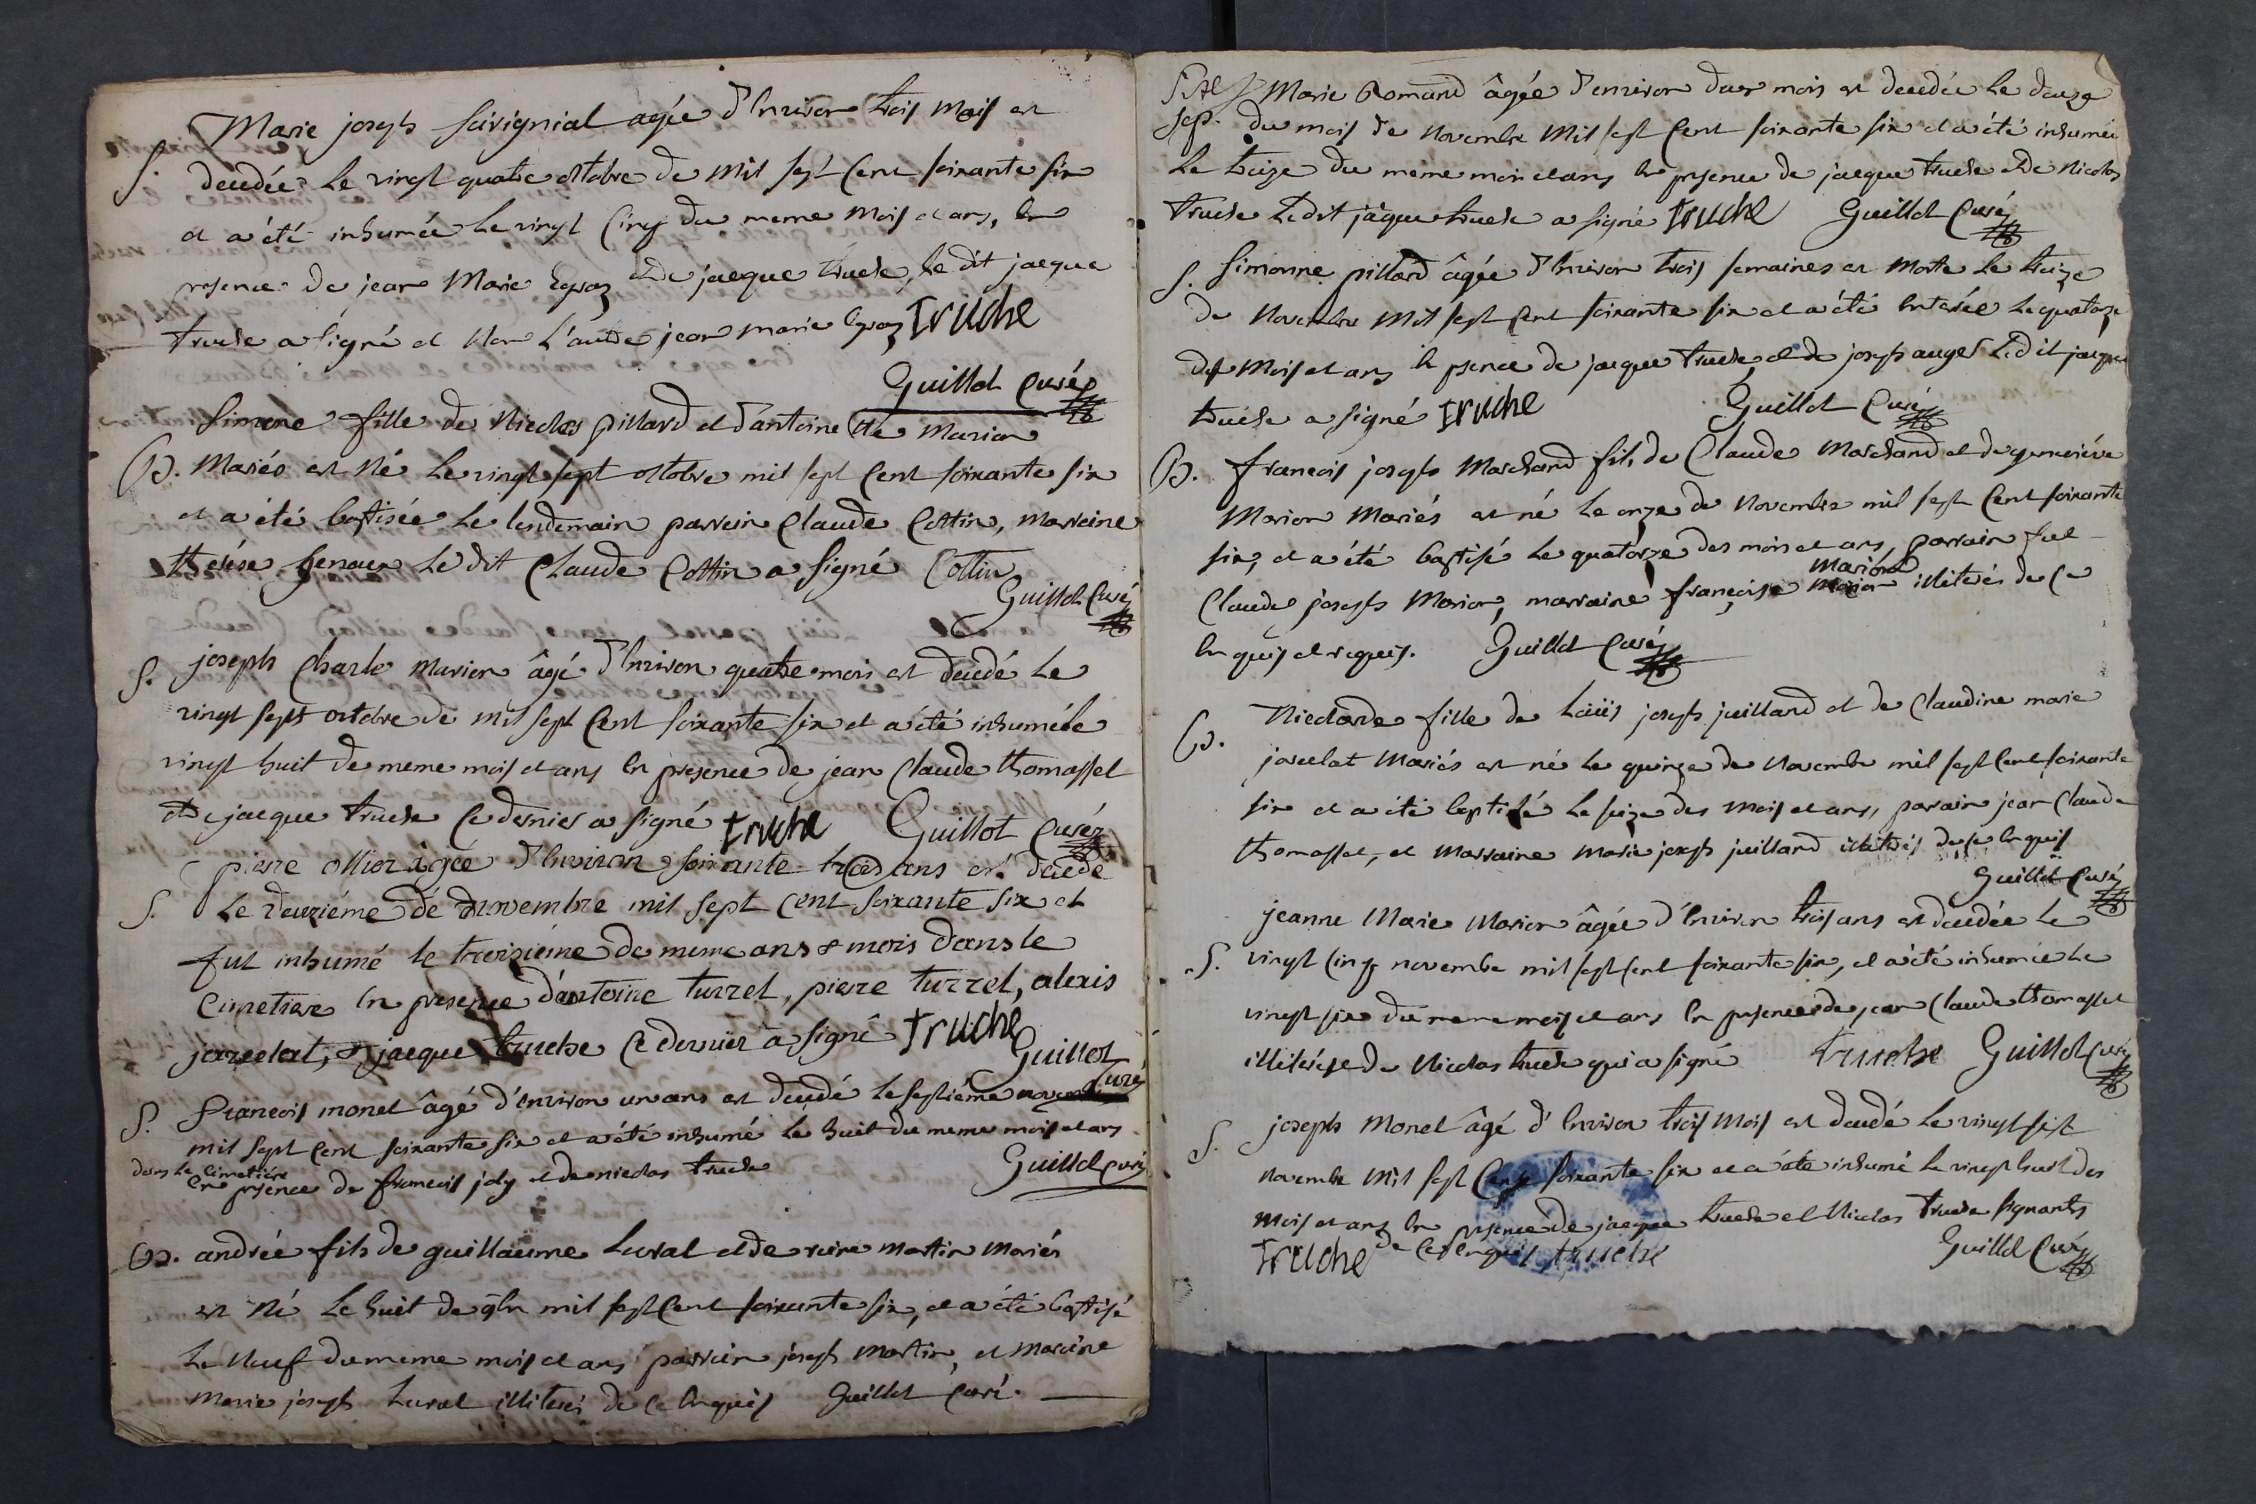 Marie joseph savignial agée d'Environ trois mois est
S. decedée le vingt quatre octobre de mil sept cent soixante six
et a été inhumée le vingt cinq du meme mois et ans, en
presence de jean Marie et de jacque truche, le dit jacque
truche a signé et non l'autre jean marie truche
Guillot Curé
Simone fille de Nicolas pillard et d'antoinette Marion
B. Mariés est né le vingt sept octobre mil sept cent soixante six
et a été baptisée le lendemain parrein Claude Cottin, marreine
therése le dit Claude Cottin a signé Cottin
Guillot Curé
joseph Charle Marion âgé d'Environ quatre mois est decedé le
S. vingt sept octobre de mil sept cent soixante six et a été inhumé le
vingt huit de meme mois et ans en presence de jean Claude thomasset
et de jacque truche ce dernier a signé truche Guillot Curé
pierre ollier âgée d'Environ soixante trois ans est decedé
S. le deuziéme de novembre mil sept cent soixante six et
fut inhumé le troisiéme de meme ans & mois dans le
Cimetiere en presence d'antoine turrel, pierre turrel, alexis
jarcelat, & jacque truche ce dernier a signé truche
Guillot Curé
S. francois monet âgé d'environ un ans est decedé le septiéme novembre
mil sept cent soixante six et a été inhumé le huit du meme mois et ans
dans le Cimetiére
en presence de francois joly et de nicolas truche Guillot Curé
B. andrée fils de guillaume Luval et de reine martin mariés
est né le huit de 9bre mil sept cent soixante six, et a été baptisé
le neuf du meme mois et ans parrein joseph martin, et mareine
marie joseph Luval illiterés de ce enquis Guillot Curé.
Marie Romand âgée d'environ deux mois est decedée le douze
sep. du mois de Novembre mil sept cent soixante six et a été inhumée
le treize du meme mois et ans en presence de jacque truche et de Nicolas
truche ledit jàque truche a signé truche Guillot Curé
Simonne pillard âgée d'Environ trois semaines est morte le treize
S. de Novembre mil sept cent soixante six et a été enterée le quatorze
des mois et ans en psence de jacque truche et de joseph auger ledit jacque
truche a signé truche Guillot Curé
B. francois joseph Marchand fils de Claude Marchand et de genevieve
Marion Mariés est né le onze de Novembre mil sept cent soixante
six, et a été baptisé le quatorze des mois et ans, parrain fut
Claude joseph Marion, marraine françoise Marion illiterés de ce
enquis et requis. Guillot Curé
Nicolarde fille de Loüis joseph juillard et de Claudine marie
B. jarcelat Mariés est né le quinze de Novembre mil sept cent soixante
six et a été baptisé le seize des mois et ans, parrain jean Claude
thomasset, et marraine marie joseph juillard illiterés de ce enquis
Guillot Curé
jeanne Marie Marion âgée d'Environ trois ans est decedée le
S. vingt cinq novembre mil sept cent soixante six, et a été inhumée le
vingt six du meme mois et ans en presence de jean Claude thomasset
illiteré et de Nicolas truche qui a signé truche Guillot Curé
joseph Monet âgé d'Environ trois mois est decedé le vingt sept
S. novembre mil sept cent soixante six et a été inhumé le vingt huit des
mois et ans en presence de jacque truche et Nicolas truche signants
truche de ce enquis truche Guillot Curé